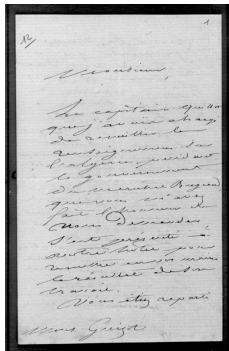 12
1
Monsieur,
Le capitaine
que j'avais chargé
de recueillir les
renseignemens sur
l'algérie, pendant
le gouvernement
du Maréchal Bugeaud
que vous m'avez
fait l'honneur de
nous demander
s'est présenté à
votre hôtel pour
remettre en vos mains
le résultat de son
travail.
Vous étiez reparti
Mons Guizot